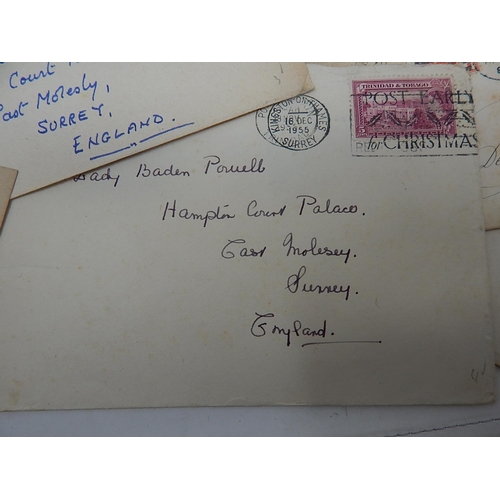 Court
East Molesly,
SURREY,
ENGLAND.
KINGSTON-ON-THAMES
16 DEC
1955
SURREY
TRINIDAD & TOBAGO
POST EARLY
for CHRISTMAS
Lady Baden Powell
Hampton Court Palace.
East Molesey
Surrey.
England.